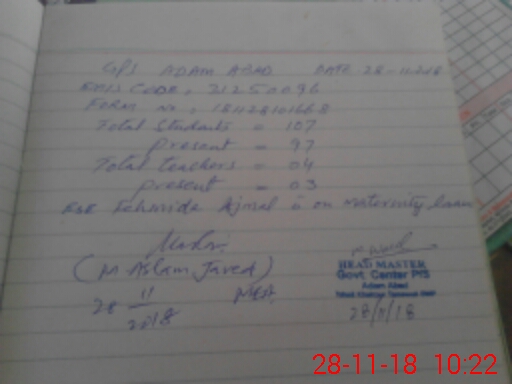 GPS ADAM ABAD DATE 28-11-2018
EMIS CODE: 31250096
FORM No: 181128101668
Total Students = 107
present = 97
Total teachers = 04
present = 03
ESE Fehmida Ajmal is on maternity leave
(M Aslam Javed)
28 11 2018
HEAD MASTER
Govt. Center P/S
Adam Abad
28/11/18
28-11-18 10:22